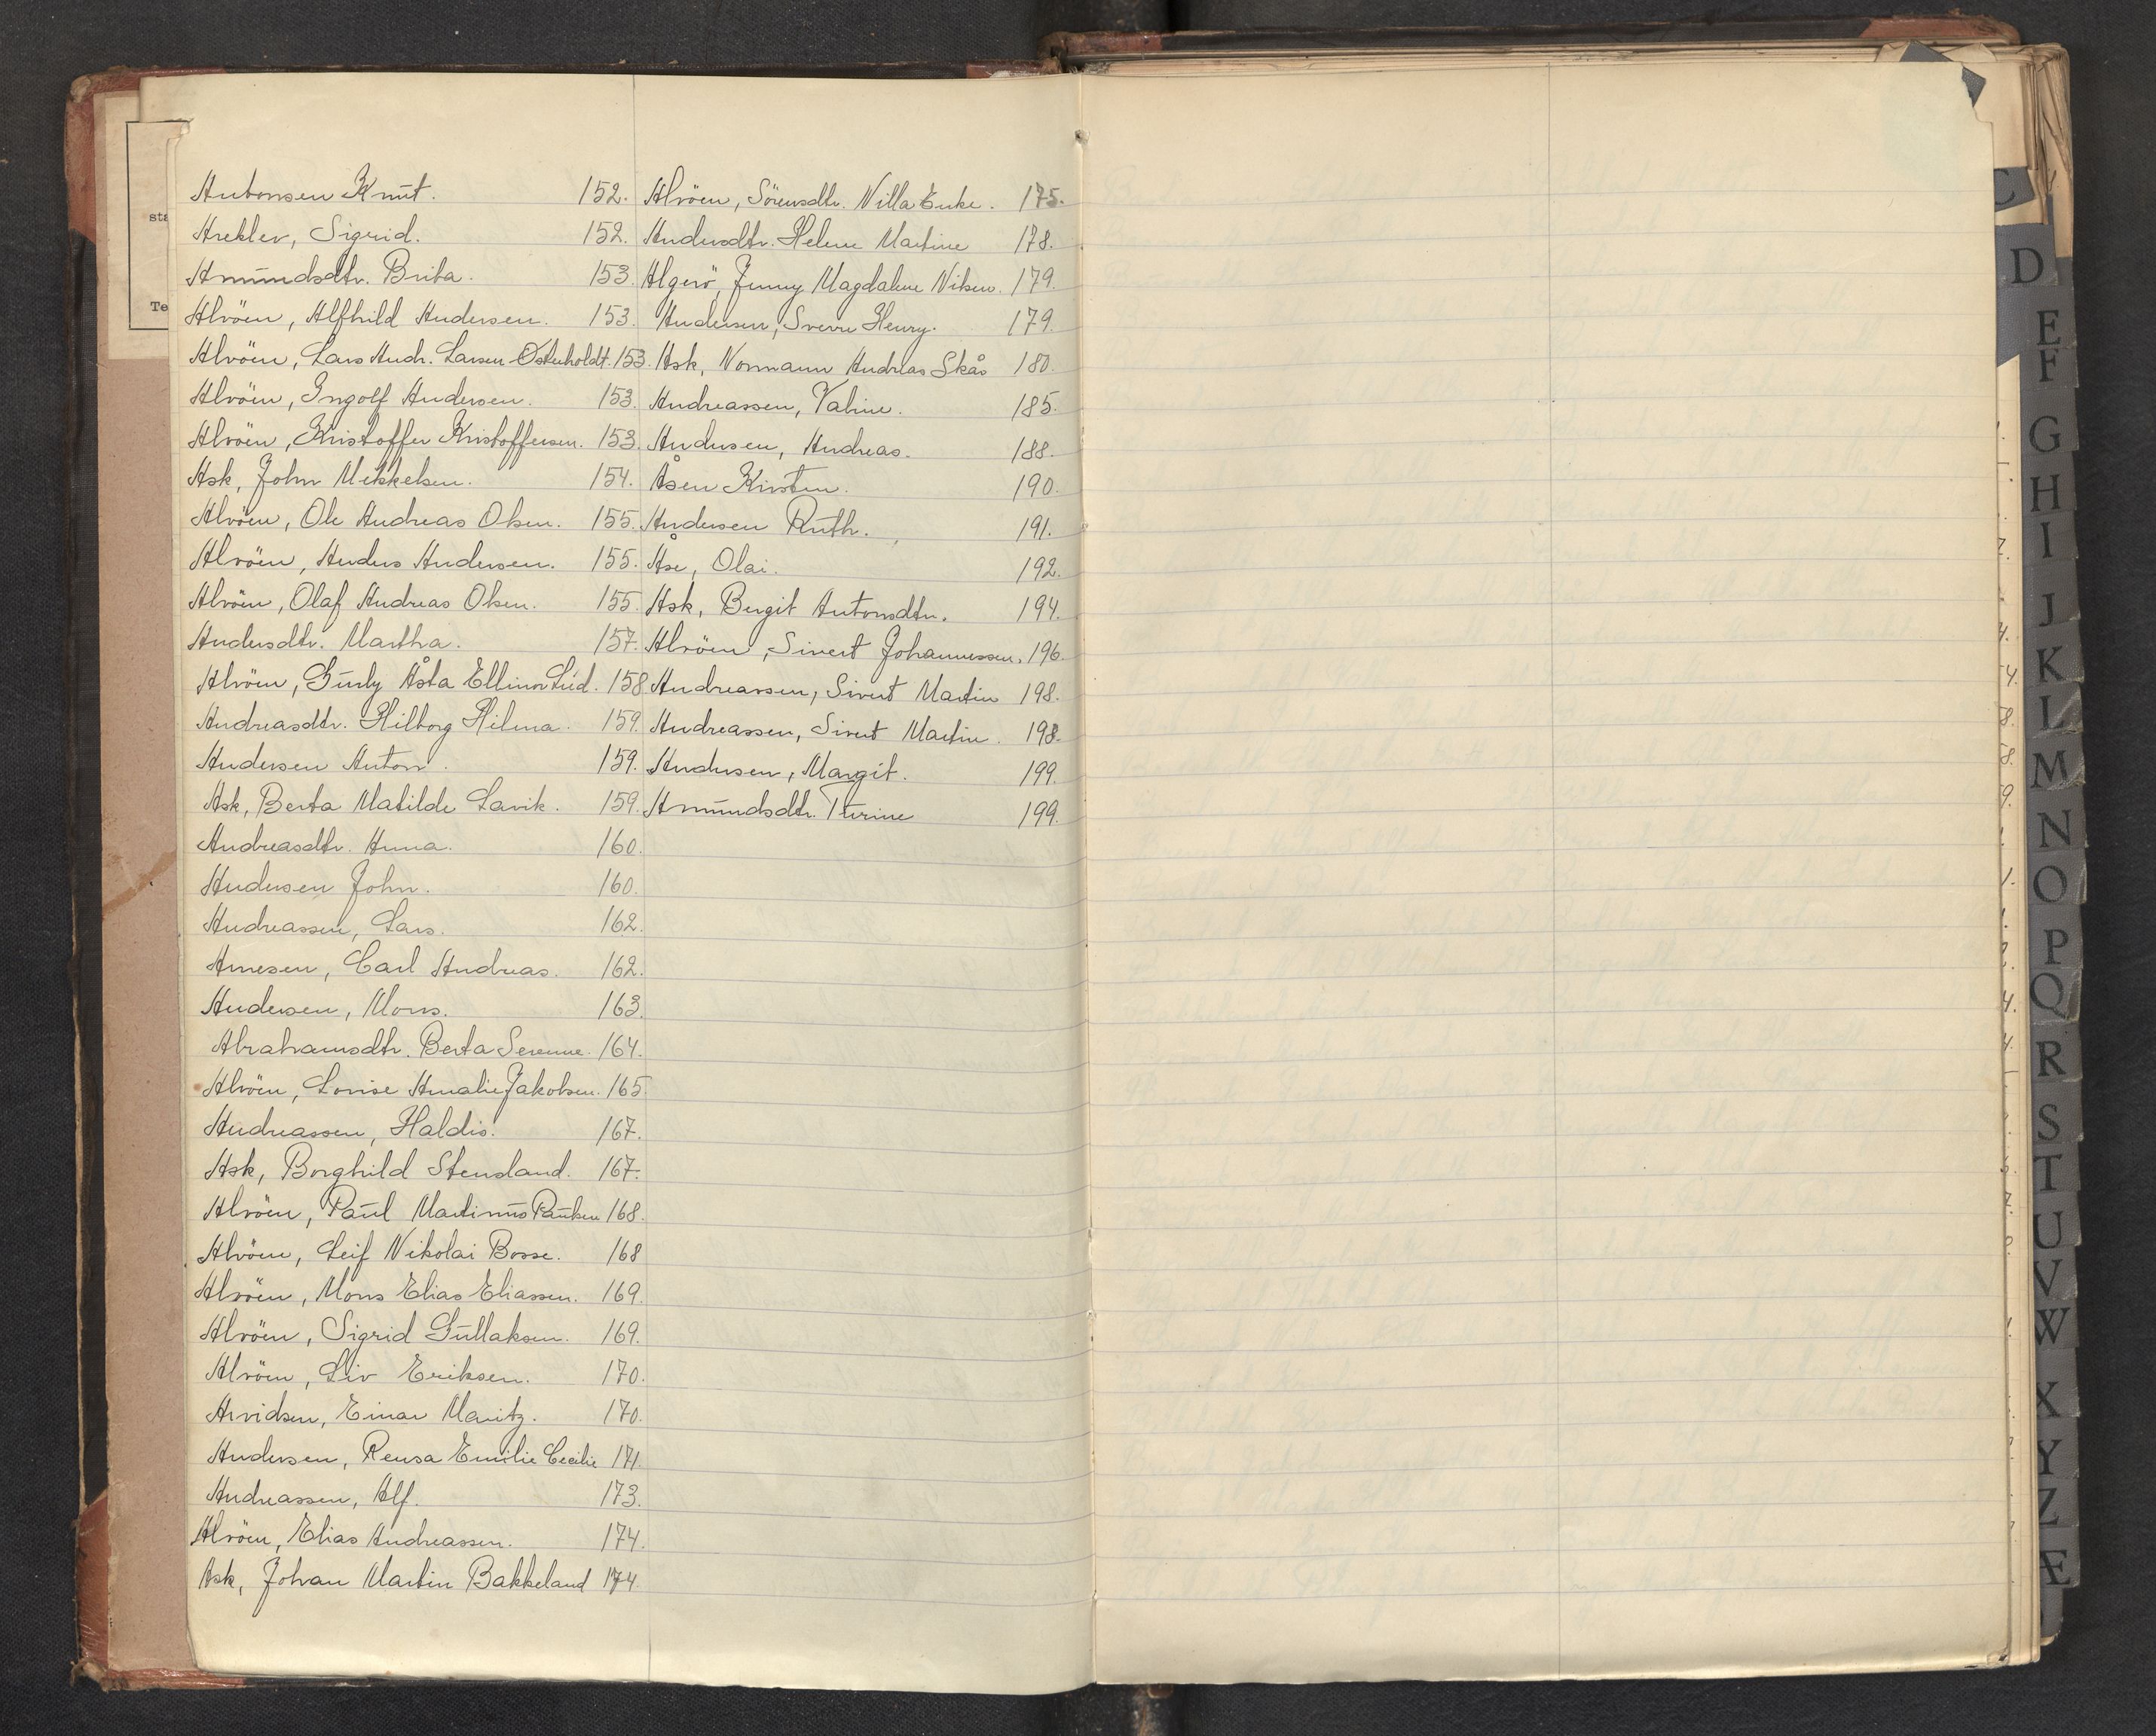 Antonsen Knut. 152.
Areklev, Sigrid. 152.
Amundsdtr. Brita. 153.
Alvöen, Alfhild Andersen. 153.
Alvöen, Lars Andr. Larsen Österholdt. 153.
Alvöen, Ingolf Andersen. 153.
Alvöen, Kristoffer Kristoffersen. 153.
Ask, John Mikkelsen. 154.
Alvöen, Ole Andreas Olsen. 155.
Alvöen, Anders Andersen. 155.
Alvöen, Olaf Andreas Olsen. 155.
Andersdtr. Martha. 157.
Alvöen, Gurly Åsta Ellinor Lid. 158
Andreasdtr. Hilborg Hilma. 159.
Andersen Anton. 159.
Ask, Berta Matilde Lavik. 159.
Andreasdtr. Anna. 160.
Andersen John. 160.
Andreassen, Lars. 162.
Arnesen, Carl Andreas. 162.
Andersen, Mons. 163.
Abrahamsdtr. Berta Serenne. 164.
Alvöen, Lovise Amalie Jakobsen. 165.
Andreassen, Haldis. 167.
Ask, Borghild Stensland. 167.
Alvöen, Paul Martinus Paulsen 168.
Alvöen, Leif Nikolai Bosse. 168
Alvöen, Mons Elias Eliassen. 169.
Alvöen, Sigrid Gullaksen. 169.
Alvöen, Liv Eriksen. 170.
Arvidsen, Einar Maritz. 170.
Andersen, Rensa Emilie Cecilie 171.
Andreassen, Alf. 173.
Alvöen, Elias Andreassen. 174.
Ask, Johan Martin Bakkeland 174.
Alvöen, Sörensdtr. Villa Enke. 175.
Andersdtr. Helene Martine 178.
Algerö, Jenny Magdalene Nilsen. 179.
Andersen, Sverre Henry. 179.
Ask, Normann Andreas Skås 180.
Andreassen, Valine. 185.
Andersen, Andreas. 188.
Åsen Kirsten. 190.
Andersen Ruth. 191.
Åse, Olai. 192.
Ask, Bergit Antonsdtr. 194.
Alvöen, Sivert Johannessen. 196.
Andreassen, Sivert Martin 198.
Andreassen, Sivert Martin. 198.
Andersen, Margit. 199.
Amundsdtr. Turine 199.
sta
Te
C
D
E
F
G
H
I
J
K
L
M
N
O
P
Q
R
S
T
U
V
W
X
Y
Z
Æ